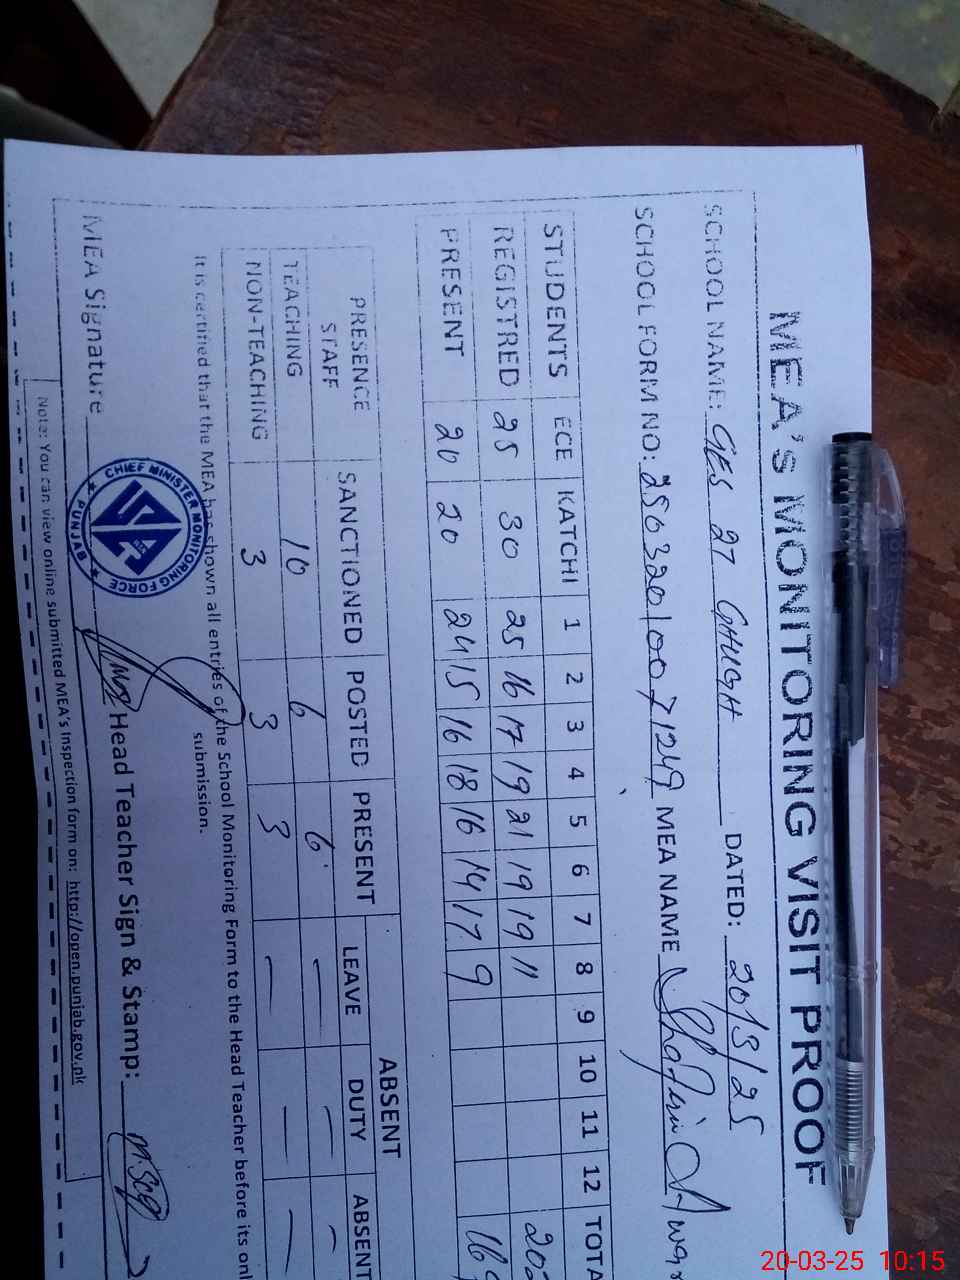 MEA'S MONITORING VISIT PROOF
SCHOOL NAME: GES 27 GHUGH DATED: 20/3/25
SCHOOL FORM NO: 250320/0071249 MEA NAME
STUDENTS ECE KATCHI 1 2 3 4 5 6 7 8 9 10 11 12 TOTA
REGISTRED 25 30 25 16 17 19 21 19 19 11 202
PRESENT 20 20 24 15 16 18 16 14 17 9 16
PRESENCE SANCTIONED POSTED PRESENT ABSENT
STAFF LEAVE DUTY ABSENT
TEACHING 10 6 6 — — —
NON-TEACHING 3 3 3 — — —
It is certified that the MEA has shown all entries of the School Monitoring Form to the Head Teacher before its onl
submission.
MEA Signature Head Teacher Sign & Stamp:
CHIEF MINISTER MONITORING FORCE
PUNJAB
Note: You can view online submitted MEA's Inspection form on: http://open.punjab.gov.pk
20-03-25 10:15